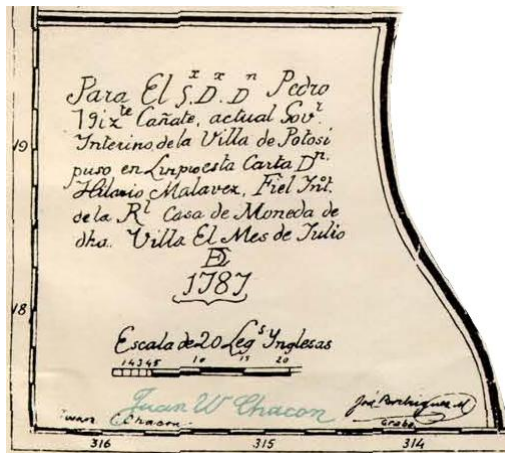 Para El S.r D.r D.n Pedro
Vizte Cañate, actual Gov.r
Interino de la Villa de Potosi
puso en Linpio esta Carta D.n
Hilario Malavez, Fiel Int.
de la R.l Casa de Moneda de
dha. Villa El Mes de Julio
DE
1787
Escala de 20 Leg.s Ynglesas
1 2 3 4 5 10 15 20
Juan W Chacon
José Rodriguez M
Juan Chacon
Grabo
19
18
316 315 314